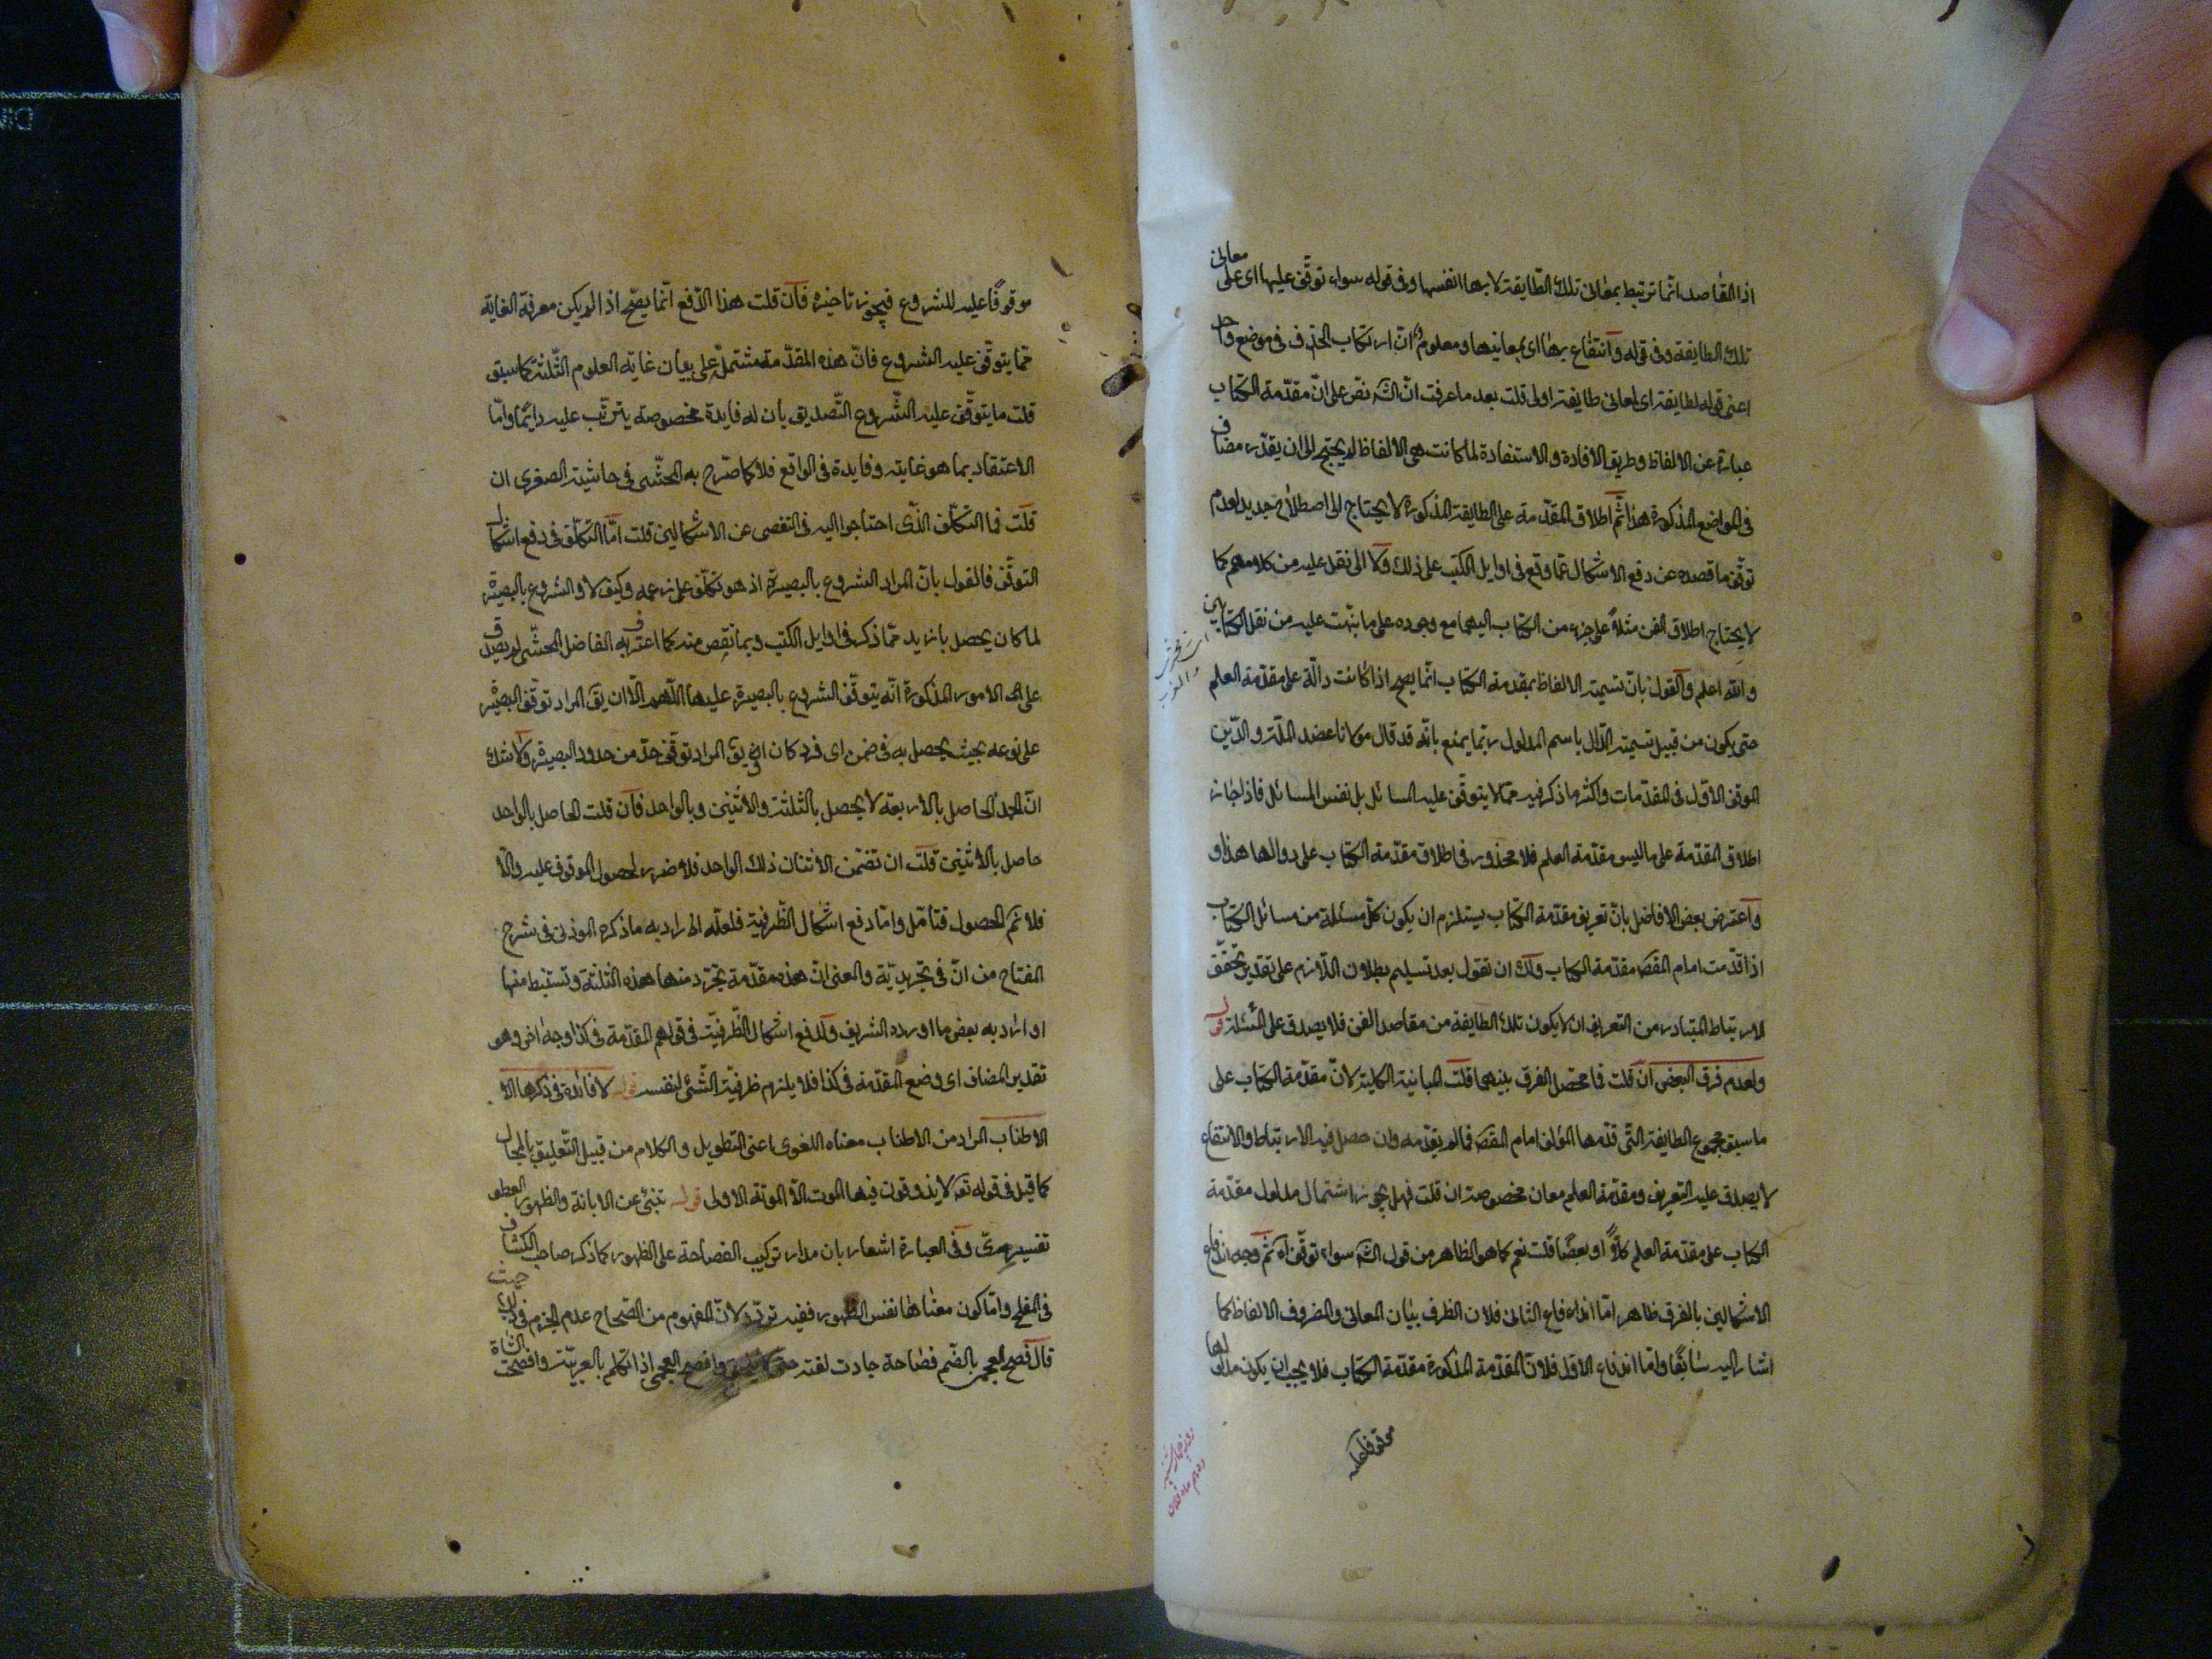 اذ المقاصد انما ترتبط بمعانى تلك الطايفة لا بها انفسها وفى قوله سواء توقف عليها اى على معانى
تلك الطايفة وفى قوله وانتفاع بها اى بمعانيها ومعلوم ان ارتكاب الحذف فى موضع واحد
اعنى قوله لطايفة اى لمعانى طايفة اولى قلت بعد ما عرفت ان الشه نص على ان مقدمة الكتاب
عبارة عن الالفاظ وطريق الافادة والاستفادة لما كانت هى الالفاظ لم يحتج الى ان يقدر مضاف
فى المواضع المذكورة هذا ثم اطلاق المقدمة على الطايفة المذكورة لا يحتاج الى اصطلاح جديد لعدم
توقف ما قصده عن دفع الاشكال عما وقع فى اوايل الكتب على ذلك ولا الى نقل عليه من كلامهم كما
لا يحتاج اطلاق الفن مثلا على جزء من الكتاب اليهما مع وجوده على ما نبهت عليه من نقل الكتابين
والله اعلم والقول بان تسمية الالفاظ بمقدمة الكتاب انما يصح اذا كانت دالة على مقدمة العلم
حتى يكون من قبيل تسمية الدال باسم المدلول ربما يمنع بانه قد قال مولانا عضد الملة والدين
الموقف الاول فى المقدمات واكثر ما ذكر فيه مما لا يتوقف عليه المسائل بل نفس المسائل فاذا جاز
اطلاق المقدمة على ما ليس مقدمة العلم فلا محذور فى اطلاق مقدمة الكتاب على دوالها هذا و
واعترض بعض الافاضل بان تعريف مقدمة الكتاب يستلزم ان يكون كل مسئلة من مسائل الكتاب
اذا قدمت امام المقصه مقدمة الكتاب ولك ان تقول بعد تسليم بطلان اللازم على تقدير تحقق
الارتباط المتبادر من التعريف ان لا يكون تلك الطايفة من مقاصد الفن فلا يصدق على المسئلة قوله
ولعدم فرق البعض ان قلت فما محصل الفرق بينهما قلت المباينة الكلية لان مقدمة الكتاب على
ما سبق مجموع الطايفة التى قدمها المؤلف امام المقصه فما لم يقدمه وان حصل فيه الارتباط والانتفاع
لا يصدق عليه التعريف ومقدمة العلم معان مخصوصة ان قلت فهل يجوز اشتمال مدلول مقدمة
الكتاب على مقدمة العلم كلا او بعضا قلت نعم كما هو الظاهر من قول الشه سواء توقف آه ثم وجه اندفاع
الاشكالين بالفرق ظاهر اما اندفاع الثانى فلان الظرف بيان المعانى والمظروف الالفاظ كما
اشار اليه سابقا واما اندفاع الاول فلان المقدمة المذكورة مقدمة الكتاب فلا يجب ان يكون مدلولها
موقوفا عليه
موقوفا عليه للشروع فيجوز تاخيره فان قلت هذا الدفع انما يصح اذا لم يكن معرفة الغاية
مما يتوقف عليه الشروع فان هذه المقدمة مشتمل على بيان غاية العلوم الثلثة كما سبق
قلت ما يتوقف عليه الشروع التصديق بان له فايدة مخصوصة يترتب عليه دايما واما
الاعتقاد بما هو غايته وفايدة فى الواقع فلا كما صرح به المحشى فى حاشيته الصغرى ان
قلت فما التكلف الذى احتاجوا اليه فى التفصى عن الاشكالين قلت اما التكلف فى دفع اشكال
التوقف فالقول بان المراد الشروع بالبصيرة اذ هو تكلف على زعمه وكيف لا والشروع بالبصيرة
لما كان يحصل بازيد مما ذكر فى اوايل الكتب وبما نقص منه كما اعترف به الفاضل المحشى لم يصدق
على الامور المذكورة انه يتوقف الشروع بالبصيرة عليها اللهم الا ان يق المراد توقف البصيرة
على نوعه بحيث يحصل به فى ضمن اى فرد كان او يق المراد توقف حد من حدود البصيرة ولا شك
ان الحد الحاصل بالاربعة لا يحصل بالثلثة والاثنين وبالواحد فان قلت الحاصل بالواحد
حاصل بالاثنين قلت ان تضمن الاثنان ذلك الواحد فلا ضرر لحصول الموقوف عليه والا
فلا ثم الحصول فتامل واما دفع اشكال الظرفية فلعله اراد به ماذكره الموذنى فى شرح
المفتاح من ان فى تجريدية والمعنى ان هذه مقدمة تجرد منها هذه الثلثة وتستنبط منها
او اراد به بعض ما اورده الشريف ولدفع اشكال الظرفية فى قولهم المقدمة فى كذا وجه اخر وهو
تقدير المضاف اى وضع المقدمة فى كذا فلا يلزم ظرفية الشئ لنفسه قوله لا فائدة فى ذكرها الا
الاطناب المراد من الاطناب معناه اللغوى اعنى التطويل والكلام من قبيل التعليق بالمحال
كما قيل فى قوله تعه لا يذوقون فيها الموت الا الموتة الاولى قوله تنبئ عن الابانة والظهور العطف
تفسيرى وفى العبارة اشعار بان مدار تركيب الفصاحة على الظهور كما ذكر صاحب الكشاف
فى الفلح واما كون معناها نفس الظهور ففيه تردد لان المفهوم من الصحاح عدم الجزم فى ذلك حيث
قال فصح العجمى بالضم فصاحة جادت لغته حتى وافصح العجمى اذا تكلم بالعربية وافصحت الشاة